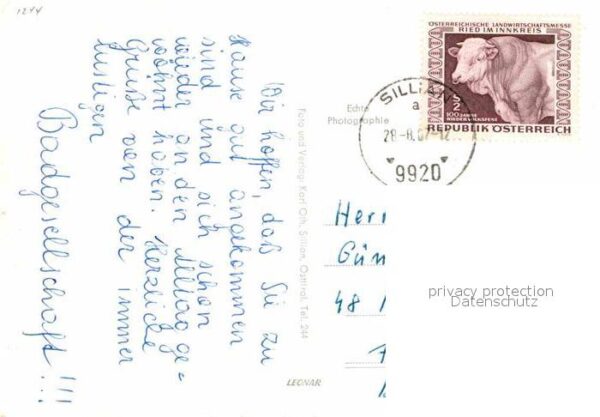 1244
Wir hoffen, daß Sie zu
Hause gut angekommen
sind und sich schon
wieder an den Alltag ge=
wöhnt haben. Herzliche
Grüße von der immer
lustigen
Badgesellschaft!!!
Echte
Photographie
Foto und Verlag: Karl Oth, Sillian, Osttirol, Tel. 244
LEONAR
ÖSTERREICHISCHE LANDWIRTSCHAFTSMESSE
RIED IM INNKREIS
S 2
100 JAHRE
RIEDER VOLKSFEST
REPUBLIK ÖSTERREICH
SILLIAN
a
28.-8.67-12
9920
Herr
Gün
48
privacy protection
Datenschutz